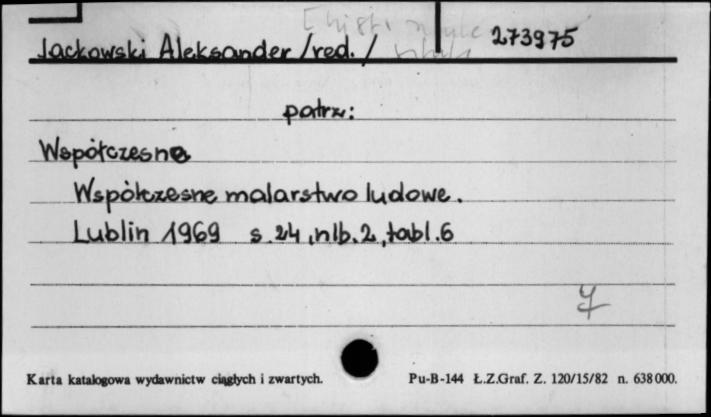 273975
Jackowski Aleksander /red./
patrz:
Współczesne
Współczesne malarstwo ludowe.
Lublin 1969 s. 24, nlb. 2, tabl. 6
Karta katalogowa wydawnictw ciągłych i zwartych. Pu-B-144 Ł.Z.Graf. Z. 120/15/82 n. 638000.